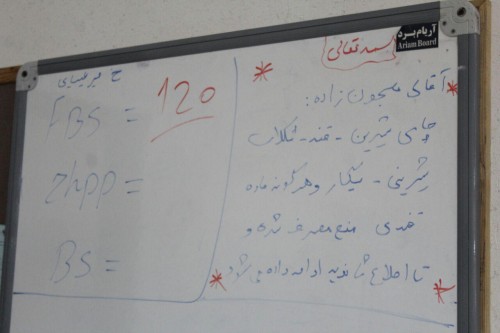 آریام برد
Ariam Board
بسمه تعالی
آقای معجون زاده:
چای شیرین - قند - شکلات
شیرینی - سیگار و هرگونه ماده
قندی منع مصرف شده و
تا اطلاع ثانوید ادامه داده می شود
FBS = 120
2hpp =
BS =